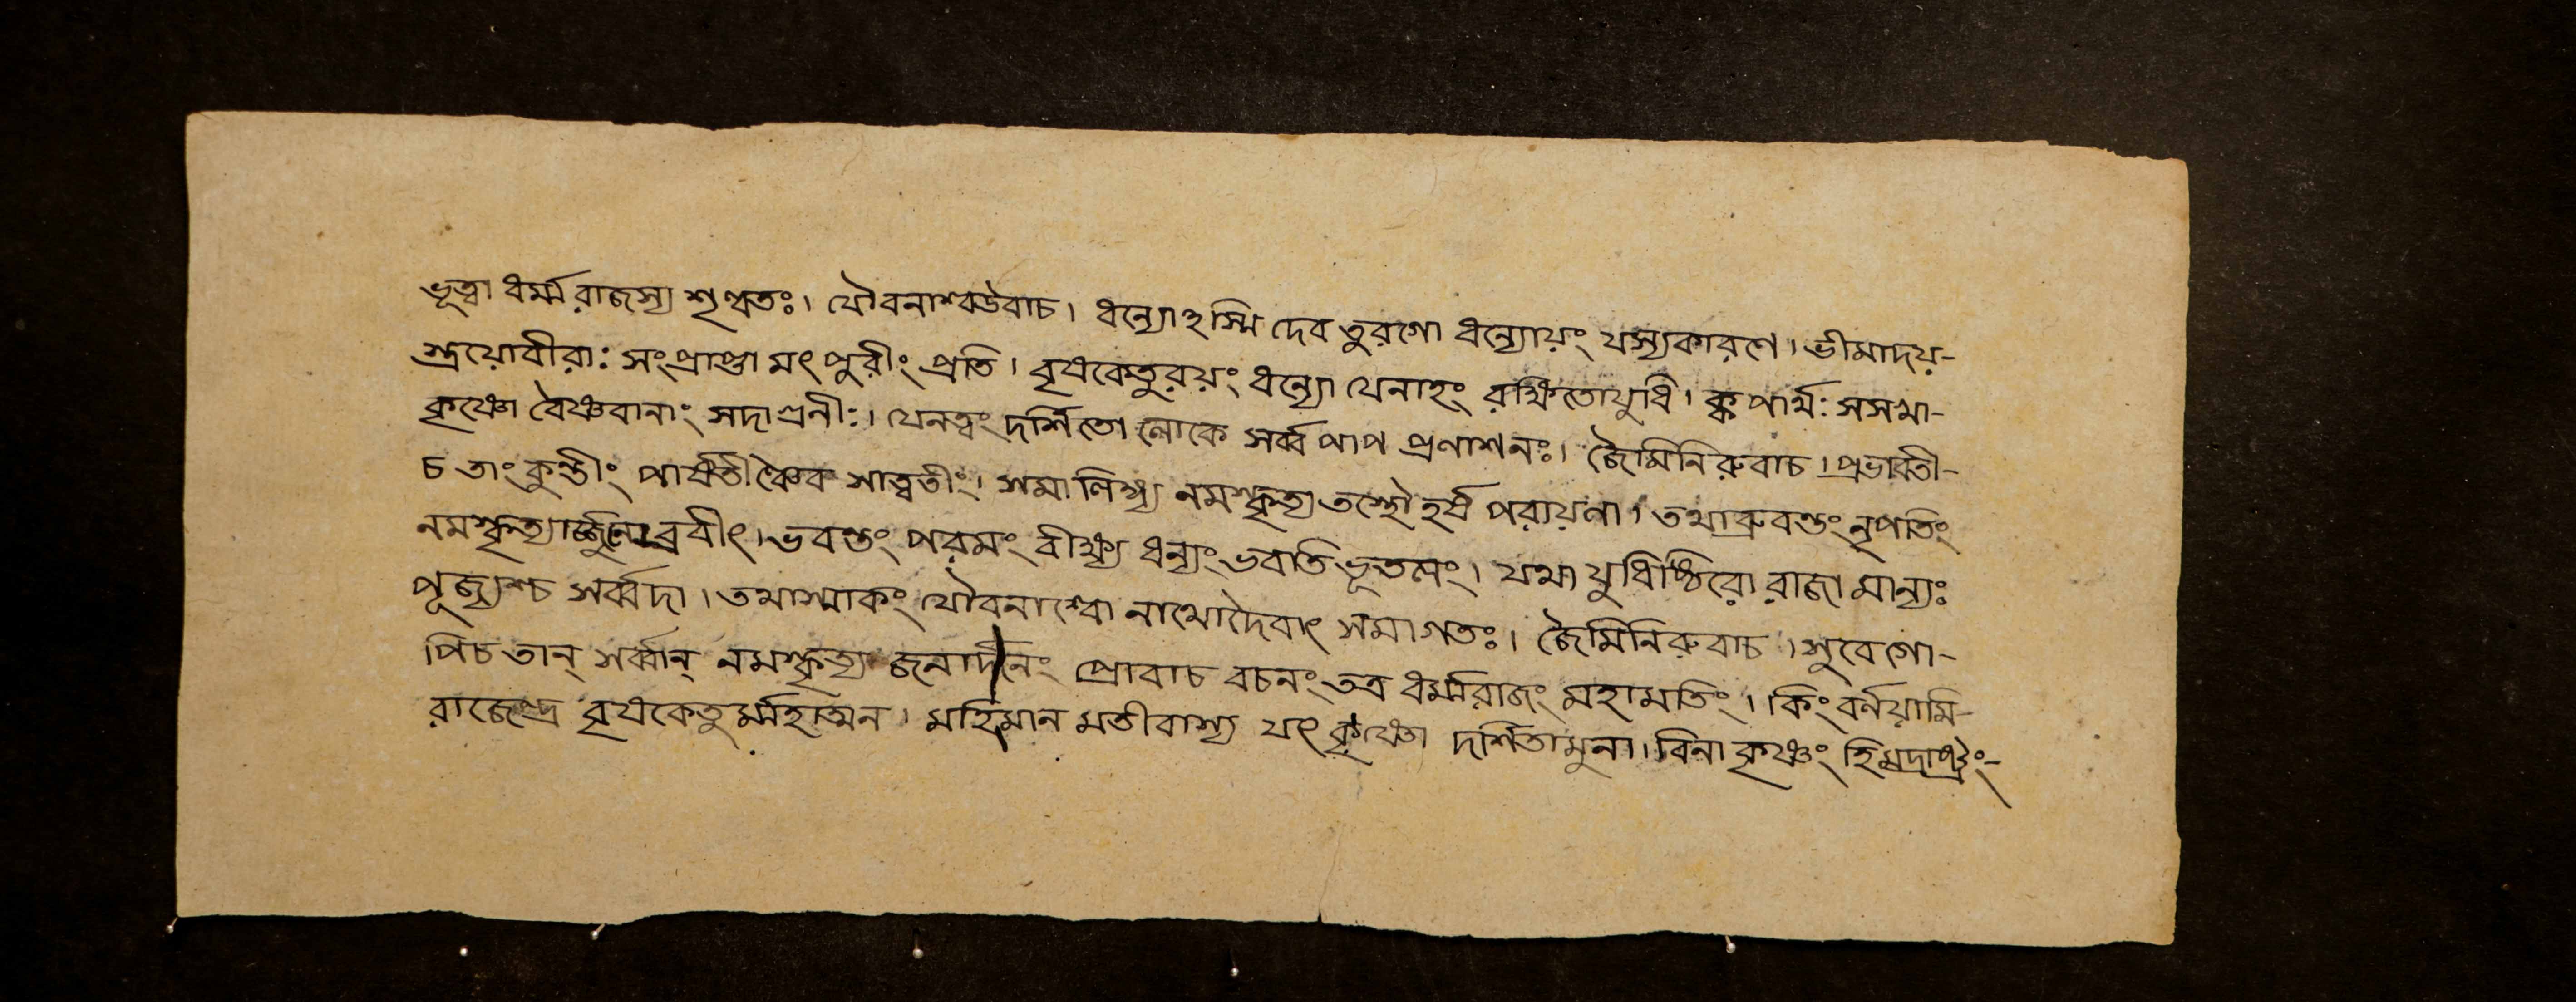 ভূত্বা ধর্ম্মরাজস্য শৃণ্বতঃ। যৌবনাশ্বউবাচ। ধন্যোঽস্মি দেব তুরগো ধন্যোয়ং যস্যকারণে। ভীমাদয়-
স্ত্রয়োবীরাঃ সংপ্রাপ্তা মৎ পুরীং প্রতি। বৃষকেতুরয়ং ধন্যো যেনাহং রক্ষিতোযুধি। ক্ক পার্থঃ সসমা-
কৃষ্ণো বৈষ্ণবানাং সদাগ্রনীঃ। যেনত্বং দর্শিতো লোকে সর্ব্বপাপ প্রণাশনঃ। জৈমিনিরুবাচ। প্রভাবতী-
চ তাং কুন্তীং পার্ষতীঞ্চৈব সাত্বতীং। সমালিঙ্গ্য নমস্কৃত্য তস্থৌ হর্ষ পরায়ণা। তথাব্রুবন্তং নৃপতিং
নমস্কৃত্যার্জ্জুনোব্রবীৎ। ভবন্তং পরমং বীক্ষ্য ধন্যং ভবতি ভূতলং। যথা যুধিষ্ঠিরো রাজা মান্যঃ
পূজ্যশ্চ সর্ব্বদা। তথাস্মাকং যৌবনাশ্বো নাথোদৈবাৎ সমাগতঃ। জৈমিনিরুবাচ। সুবেগো-
পিচ তান্ সর্ব্বান্ নমস্কৃত্য জনার্দনং প্রোবাচ বচনং তত্র ধর্ম্মরাজং মহামতিং। কিং বর্নয়ামি-
রাজেন্দ্র বৃষকেতুর্ম্মহাত্মন। মহিমান মতীবাস্য যৎ কৃষ্ণো দর্শিতামুনা। বিনা কৃষ্ণং হি